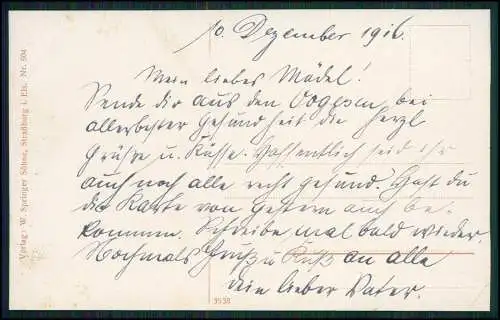 10. Dezember 1916.
Mein liebes Mädel!
Sende dir aus den Vogesen bei
allerbester Gesundheit die herzl
Grüße u. Küsse. Hoffentlich seid ihr
auch noch alle recht gesund. Hast du
die Karte von gestern auch be-
kommen. Schreibe mal bald wieder.
Nochmals Gruß u Kuß an alle
dein lieber Vater.
Verlag: W. Springer Söhne, Straßburg i. Els. Nr. 504
3938